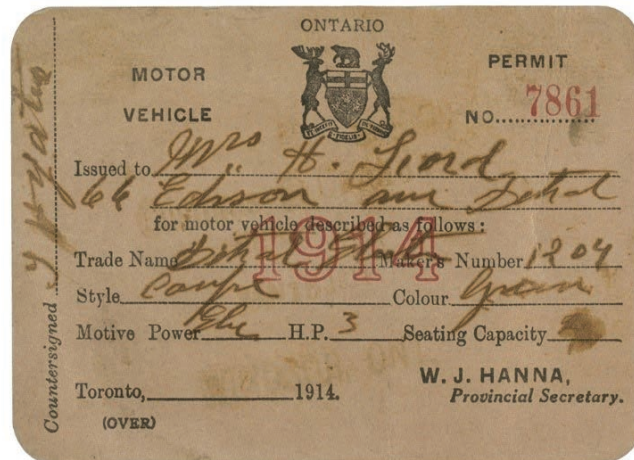 ONTARIO
MOTOR
VEHICLE
PERMIT
NO. 7861
Issued to Mrs H. Ford
66 Edison ave Detroit
for motor vehicle described as follows:
1914
Trade Name Detroit Electric Maker's Number 1204
Style Coupe Colour Green
Motive Power Elec H.P. 3 Seating Capacity
Toronto, 1914.
W. J. HANNA,
Provincial Secretary.
(OVER)
Countersigned